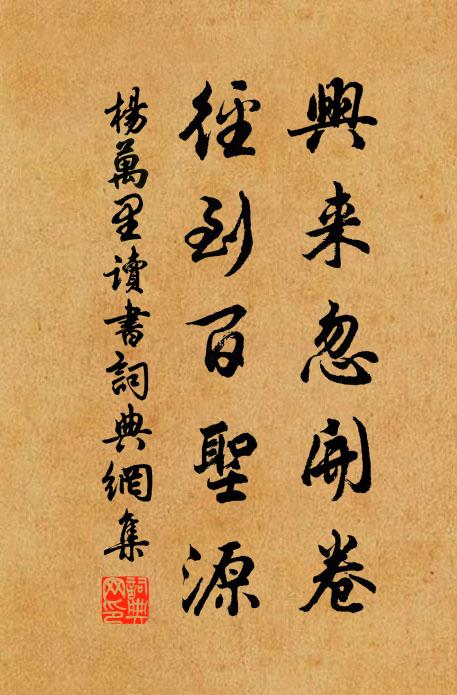 興来忽開卷
徑到百聖源
楊萬里讀書詞典網集
詞典網印